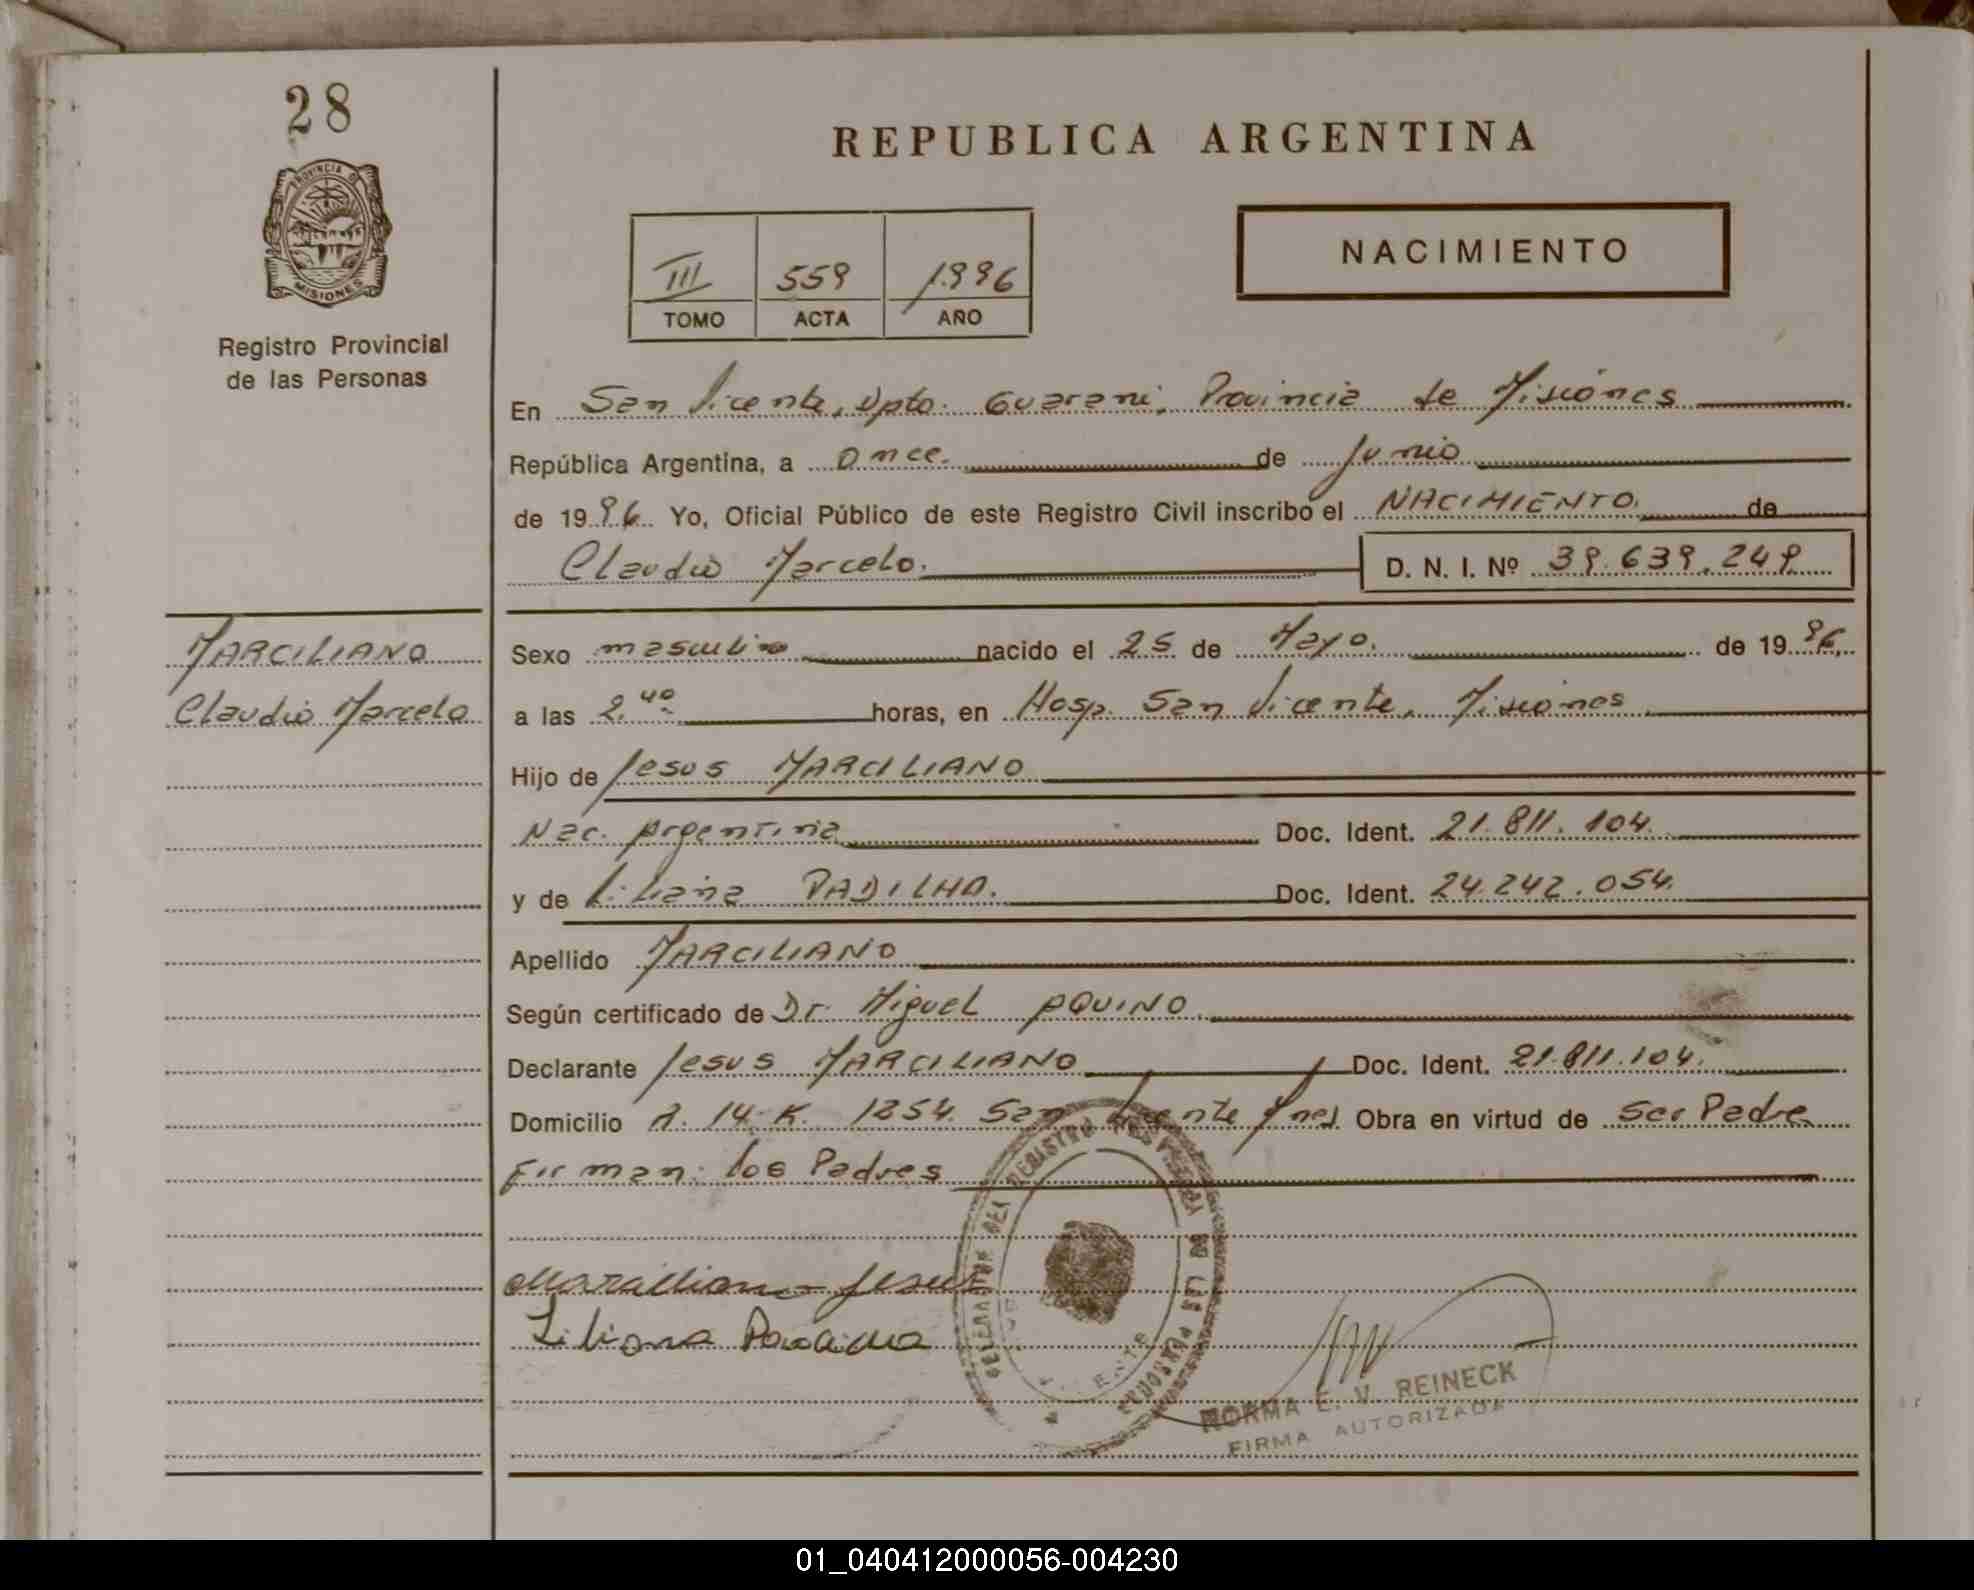 28
PROVINCIA DE
MISIONES
Registro Provincial
de las Personas
REPUBLICA ARGENTINA
NACIMIENTO
III 559 1996
TOMO ACTA AÑO
En San Vicente, Dpto. Guarani, Provincia de Misiones
República Argentina, a once. de Junio
de 1996 Yo, Oficial Público de este Registro Civil inscribo el NACIMIENTO. de
Claudio Marcelo. D. N. I. Nº 39.639.249
MARCILIANO
Claudio Marcelo
Sexo masculino nacido el 25 de Mayo. de 1996
a las 2.40 horas, en Hosp. San Vicente, Misiones
Hijo de Jesus MARCILIANO
Nac. Argentina Doc. Ident. 21.811.104
y de Liliana PADILHA. Doc. Ident. 24.242.054
Apellido MARCILIANO
Según certificado de Dr. Miguel AQUINO.
Declarante Jesus MARCILIANO Doc. Ident. 21.811.104.
Domicilio R. 14 K. 1254. San Vicente Mnes Obra en virtud de Ser Padre
Firman: los Padres
Marciliano Jesus
Liliana Padilha
DEL REGISTRO PROVINCIAL DE LAS PERSONAS
NORMA E. V. REINECK
FIRMA AUTORIZADA
01_040412000056-004230